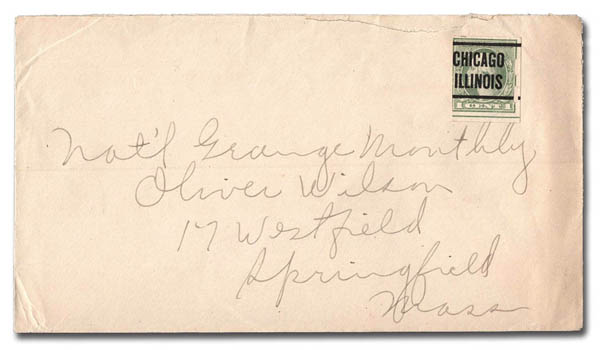 CHICAGO
ILLINOIS
CENT
Nat'l Grange Monthly
Oliver Wilson
17 Westfield
Springfield
Mass